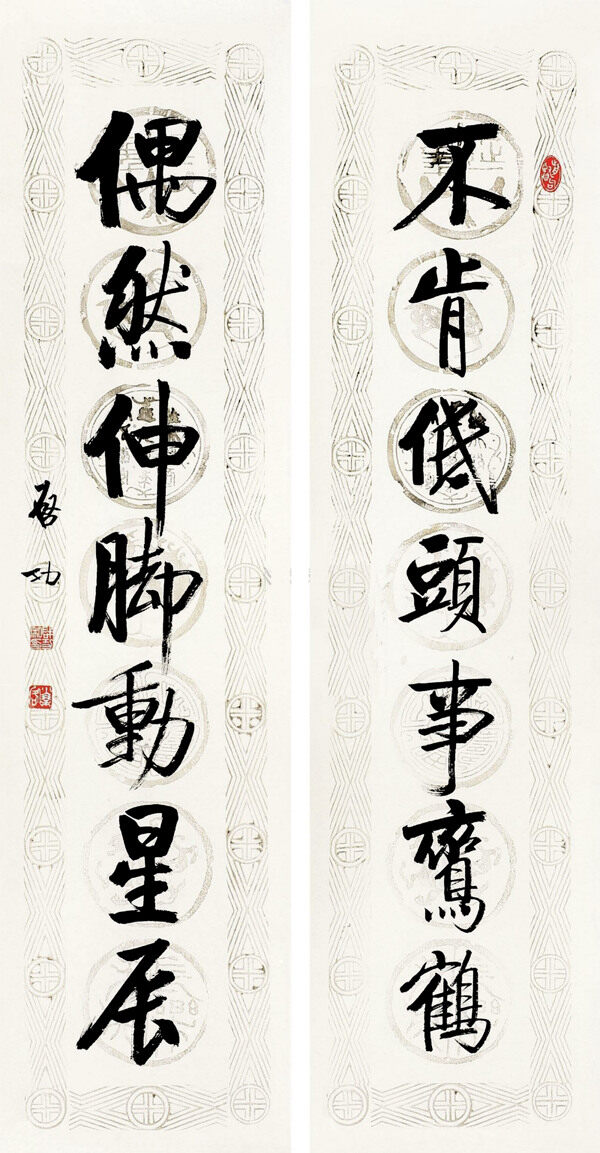 不肯低頭事鸞鶴
偶然伸脚動星辰
啓功